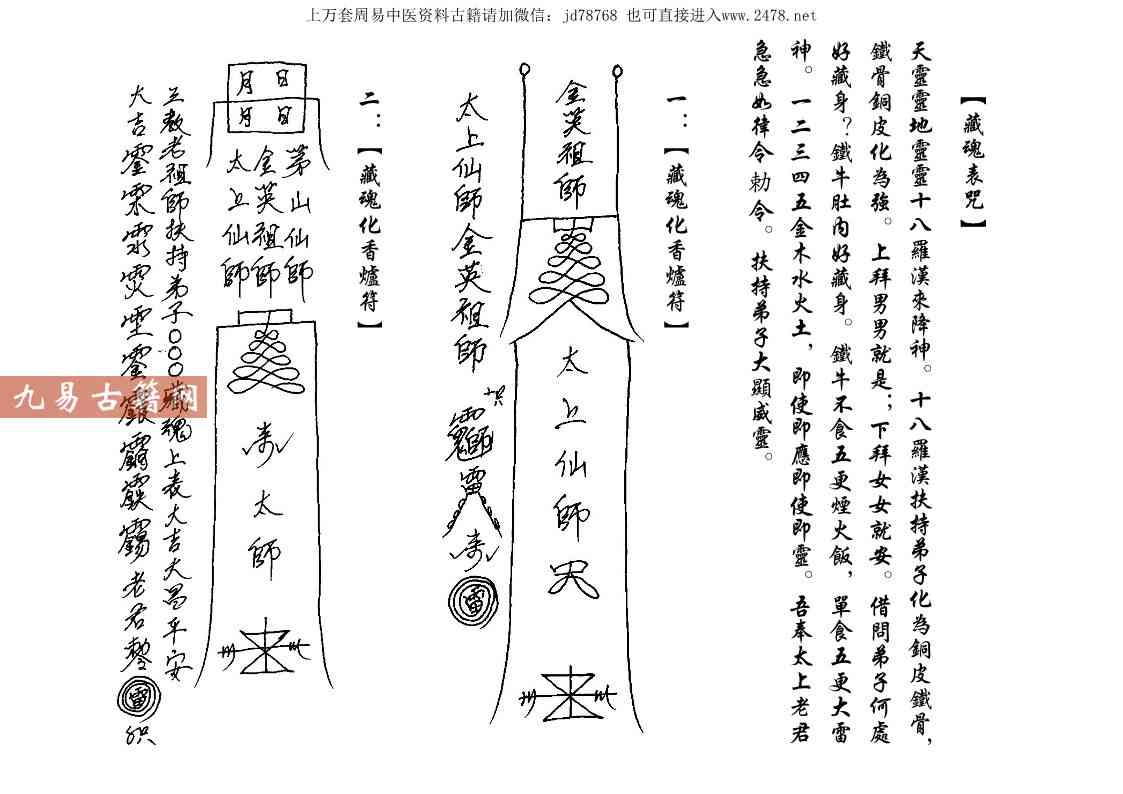 上万套周易中医资料古籍请加微信：jd78768 也可直接进入www.2478.net
【藏魂表咒】
天靈靈地靈靈十八羅漢來降神。十八羅漢扶持弟子化為銅皮鐵骨，
鐵骨銅皮化為強。上拜男男就是；下拜女女就安。借問弟子何處
好藏身？鐵牛肚內好藏身。鐵牛不食五更煙火飯，單食五更大雷
神。一二三四五金木水火土，即使即應即使即靈。吾奉太上老君
急急如律令勅令。扶持弟子大顯威靈。
一：【藏魂化香爐符】
金英祖師
太上仙師
太上仙師金英祖師
雷
雷
二：【藏魂化香爐符】
日月
日月
茅山仙師
金英祖師
太上仙師
太師
三教老祖師扶持弟子○○○藏魂上表大吉大昌平安
大吉
老君
雷
九易古籍网